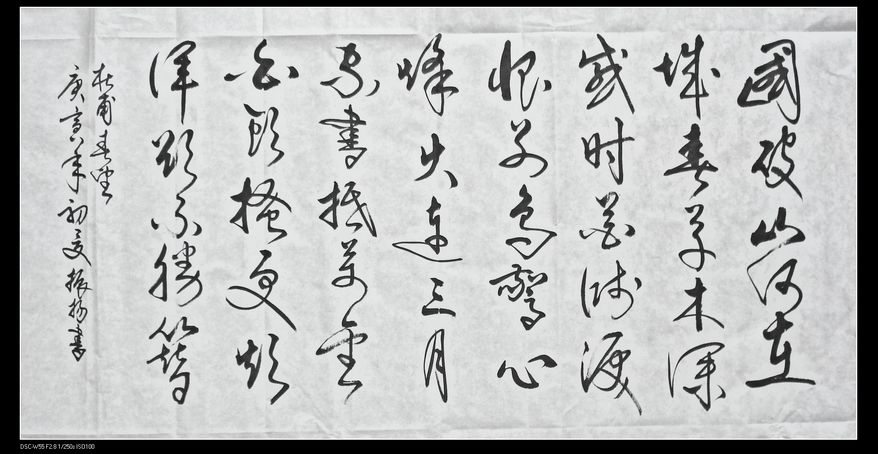 國破山河在
城春草木深
感时花濺淚
恨別鳥驚心
烽火連三月
家書抵萬金
白頭搔更短
渾欲不勝簪
杜甫春望
庚寅年初夏振揚書
DSC-W55 F2.8 1/250s ISO100